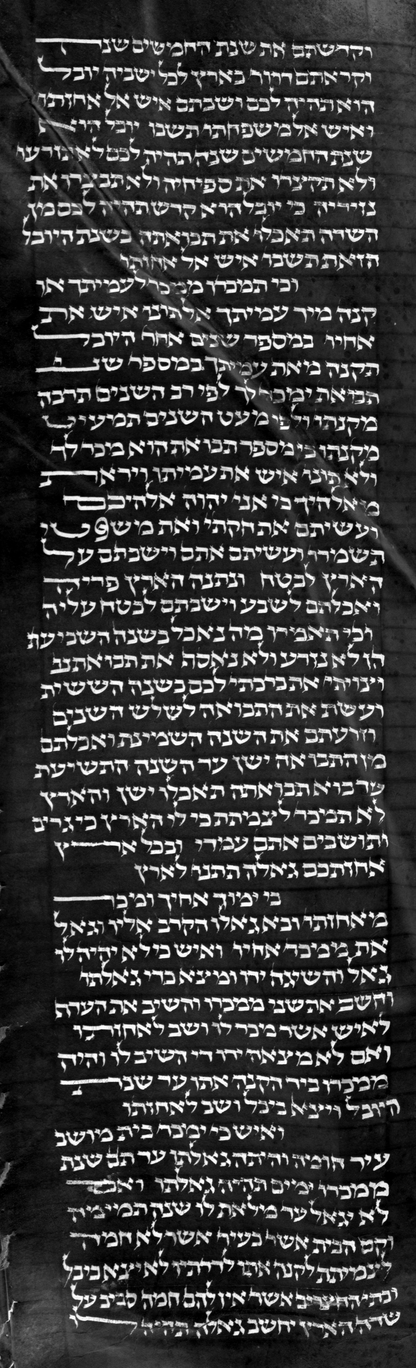 וקדשתם את שנת החמשים שנה
וקראתם דרור בארץ לכל ישביה יובל
הוא תהיה לכם ושבתם איש אל אחזתו
ואיש אל משפחתו תשבו יובל היא
שנת החמשים שנה תהיה לכם לא תזרעו
ולא תקצרו את ספיחיה ולא תבצרו את
נזריה כי יובל הוא קדש תהיה לכם מן
השדה תאכלו את תבואתה בשנת היובל
הזאת תשבו איש אל אחזתו
וכי תמכרו ממכר לעמיתך או
קנה מיד עמיתך אל תונו איש את
אחיו במספר שנים אחר היובל
תקנה מאת עמיתך במספר שני
תבואת ימכר לך לפי רב השנים תרבה
מקנתו ולפי מעט השנים תמעיט
מקנתו כי מספר תבואת הוא מכר לך
ולא תונו איש את עמיתו ויראת
מאלהיך כי אני יהוה אלהיכם
ועשיתם את חקתי ואת משפטי
תשמרו ועשיתם אתם וישבתם על
הארץ לבטח ונתנה הארץ פריה
ואכלתם לשבע וישבתם לבטח עליה
וכי תאמרו מה נאכל בשנה השביעת
הן לא נזרע ולא נאסף את תבואתנו
וצויתי את ברכתי לכם בשנה הששית
ועשת את התבואה לשלש השנים
וזרעתם את השנה השמינת ואכלתם
מן התבואה ישן עד השנה התשיעת
עד בוא תבואתה תאכלו ישן והארץ
לא תמכר לצמתת כי לי הארץ כי גרים
ותושבים אתם עמדי ובכל ארץ
אחזתכם גאלה תתנו לארץ
כי ימוך אחיך ומכר
מאחזתו ובא גאלו הקרב אליו וגאל
את ממכר אחיו ואיש כי לא יהיה לו
גאל והשיגה ידו ומצא כדי גאלתו
וחשב את שני ממכרו והשיב את העדף
לאיש אשר מכר לו ושב לאחזתו
ואם לא מצאה ידו די השיב לו והיה
ממכרו ביד הקנה אתו עד שנת
היובל ויצא ביבל ושב לאחזתו
ואיש כי ימכר בית מושב
עיר חומה והיתה גאלתו עד תם שנת
ממכרו ימים תהיה גאלתו ואם
לא יגאל עד מלאת לו שנה תמימה
וקם הבית אשר בעיר אשר לא חמה
לצמיתת לקנה אתו לדרתיו לא יצא ביבל
ובתי החצרים אשר אין להם חמה סביב על
שדה הארץ יחשב גאלה תהיה